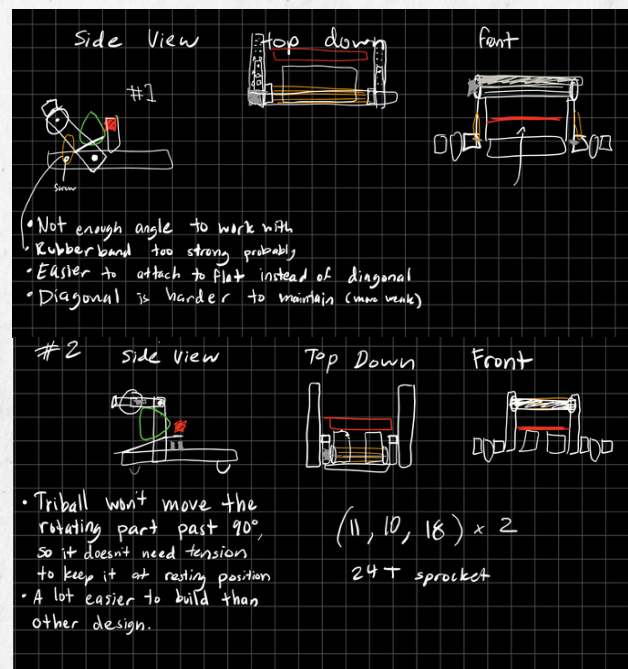 Side View
top down
Font
#1
Screw
• Not enough angle to work with
• Rubberband too strong probably
• Easier to attach to flat instead of diagonal
• Diagonal is harder to maintain (more weak)
#2
Side View
Top Down
Front
• Triball won't move the
rotating part past 90°,
so it doesn't need tension
to keep it at resting position
• A lot easier to build than
other design.
(11, 10, 18) × 2
24T sprocket